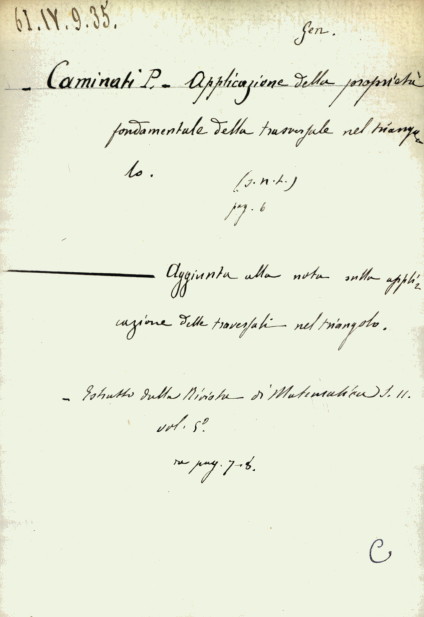 61.IV.9.35.
Gen.
- Caminati P. - Applicazione della proprietà
fondamentale della trasversale nel triango-
lo.
(s.n.t.)
pag. 6
Aggiunta alla nota sulla appli-
cazione delle traversali nel triangolo.
- Estratto dalla Rivista di Matematica S. II.
vol. 5º.
pag. 7-8.
C